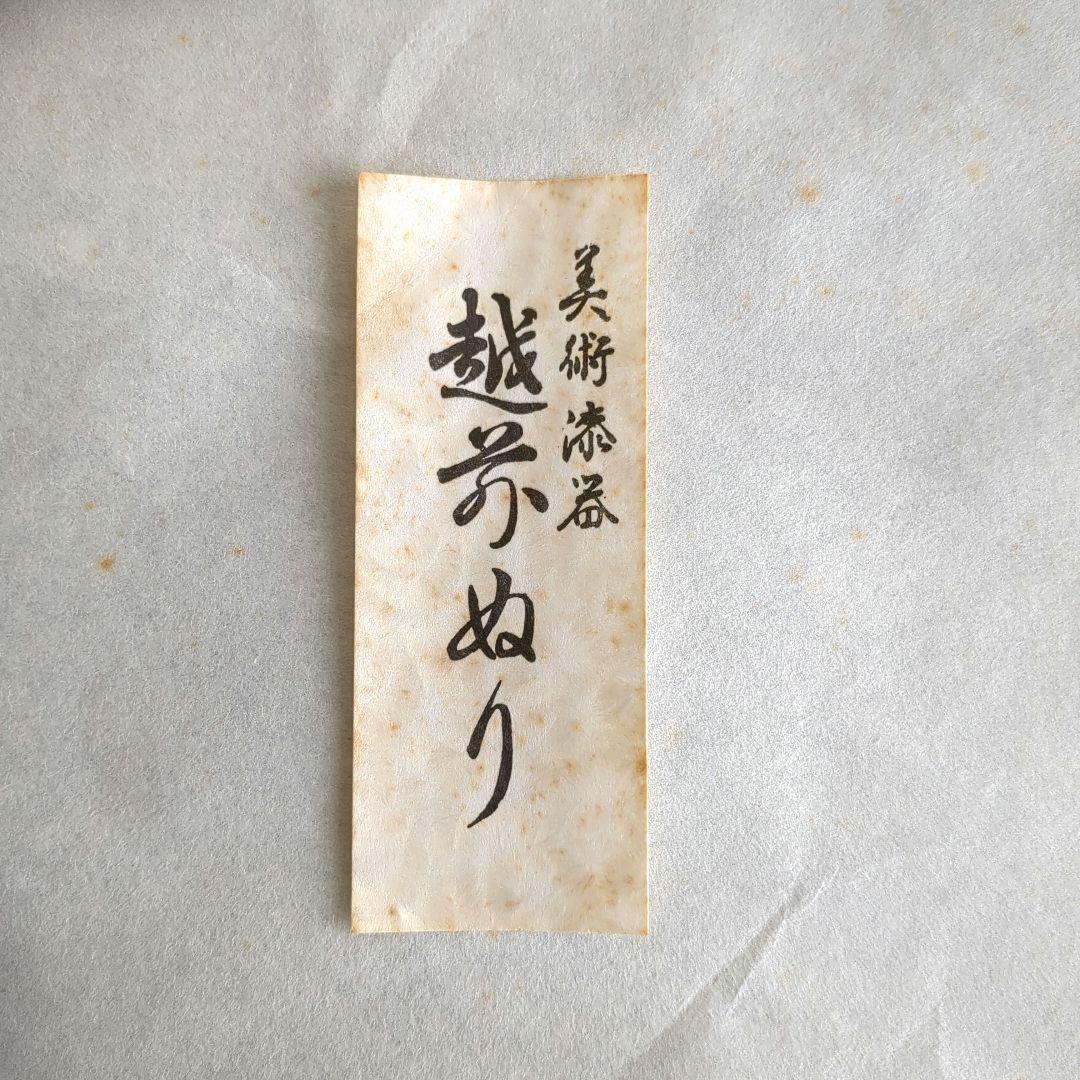 美術漆器
越前ぬり